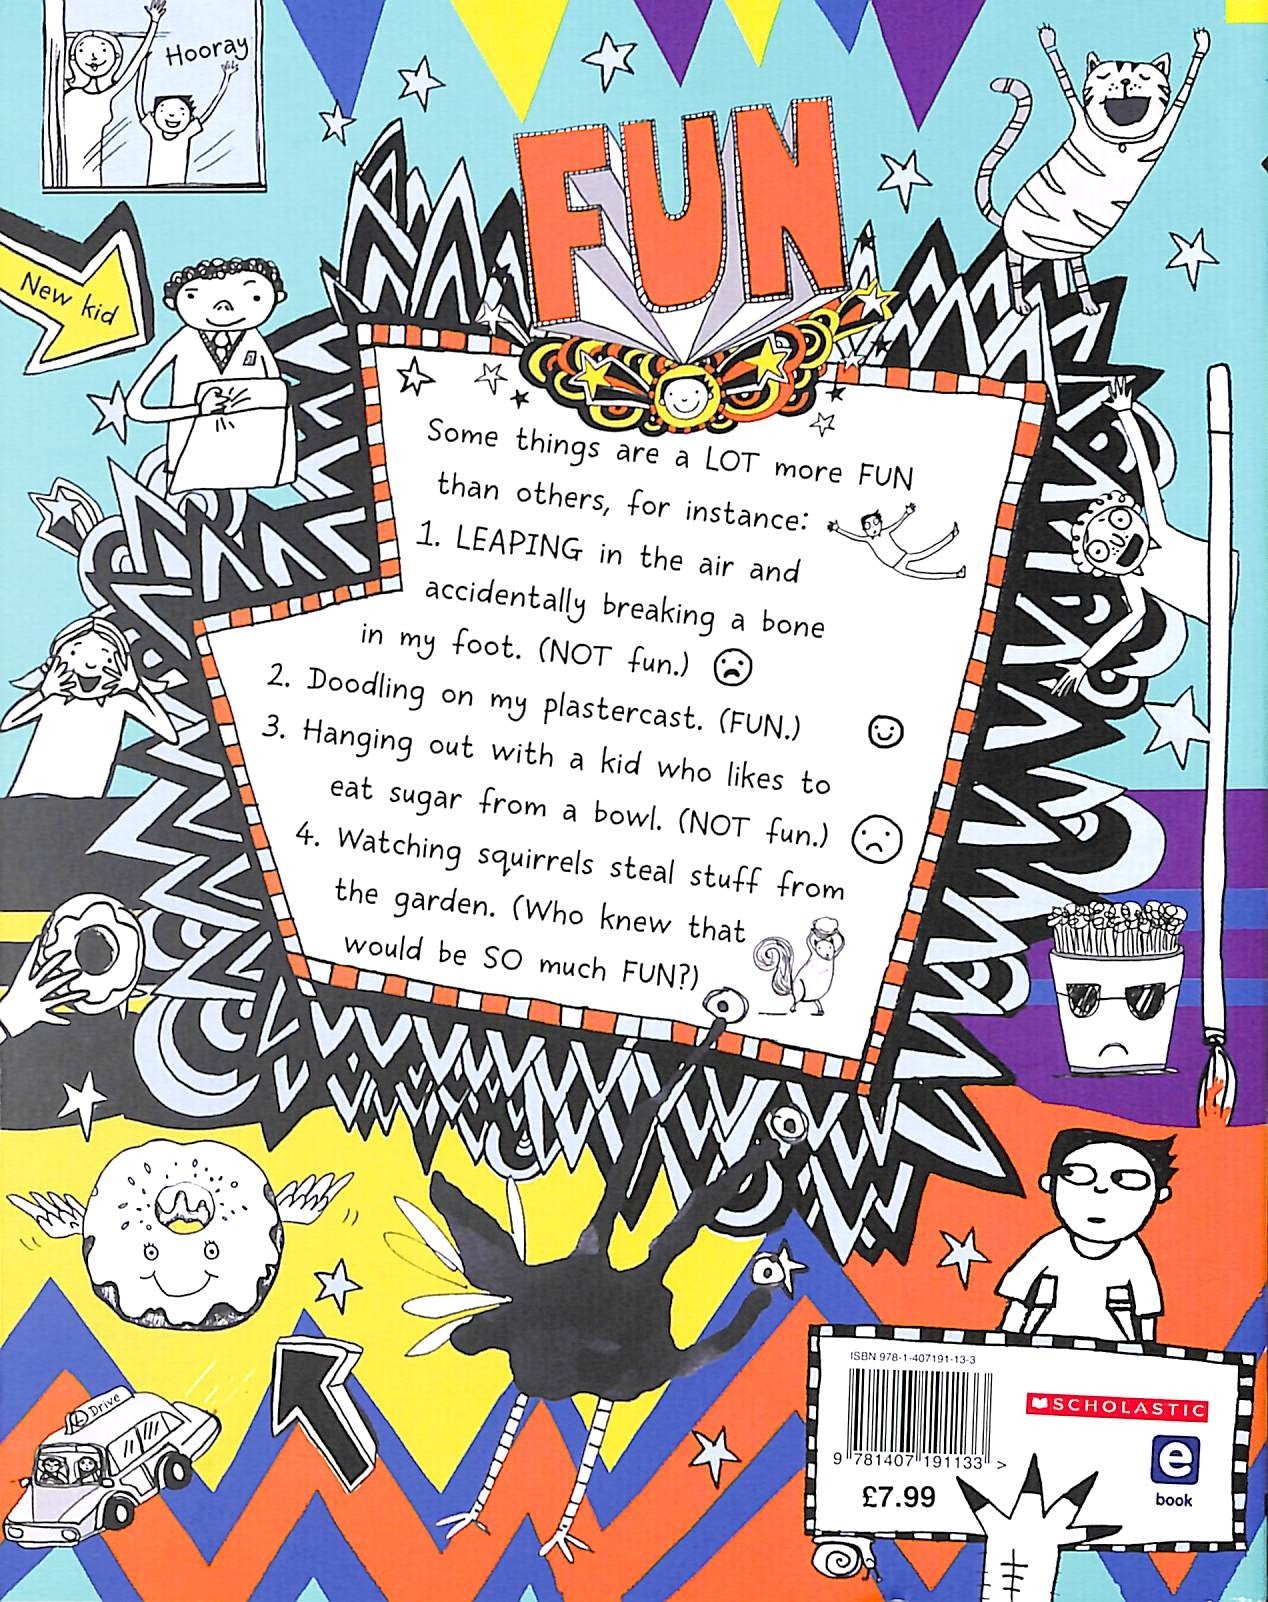 Hooray
FUN
New kid
Some things are a LOT more FUN
than others, for instance:
1. LEAPING in the air and
accidentally breaking a bone
in my foot. (NOT fun.)
2. Doodling on my plastercast. (FUN.)
3. Hanging out with a kid who likes to
eat sugar from a bowl. (NOT fun.)
4. Watching squirrels steal stuff from
the garden. (Who knew that
would be SO much FUN?)
L Drive
ISBN 978-1-407191-13-3
SCHOLASTIC
9 781407 191133 >
£7.99
e
book